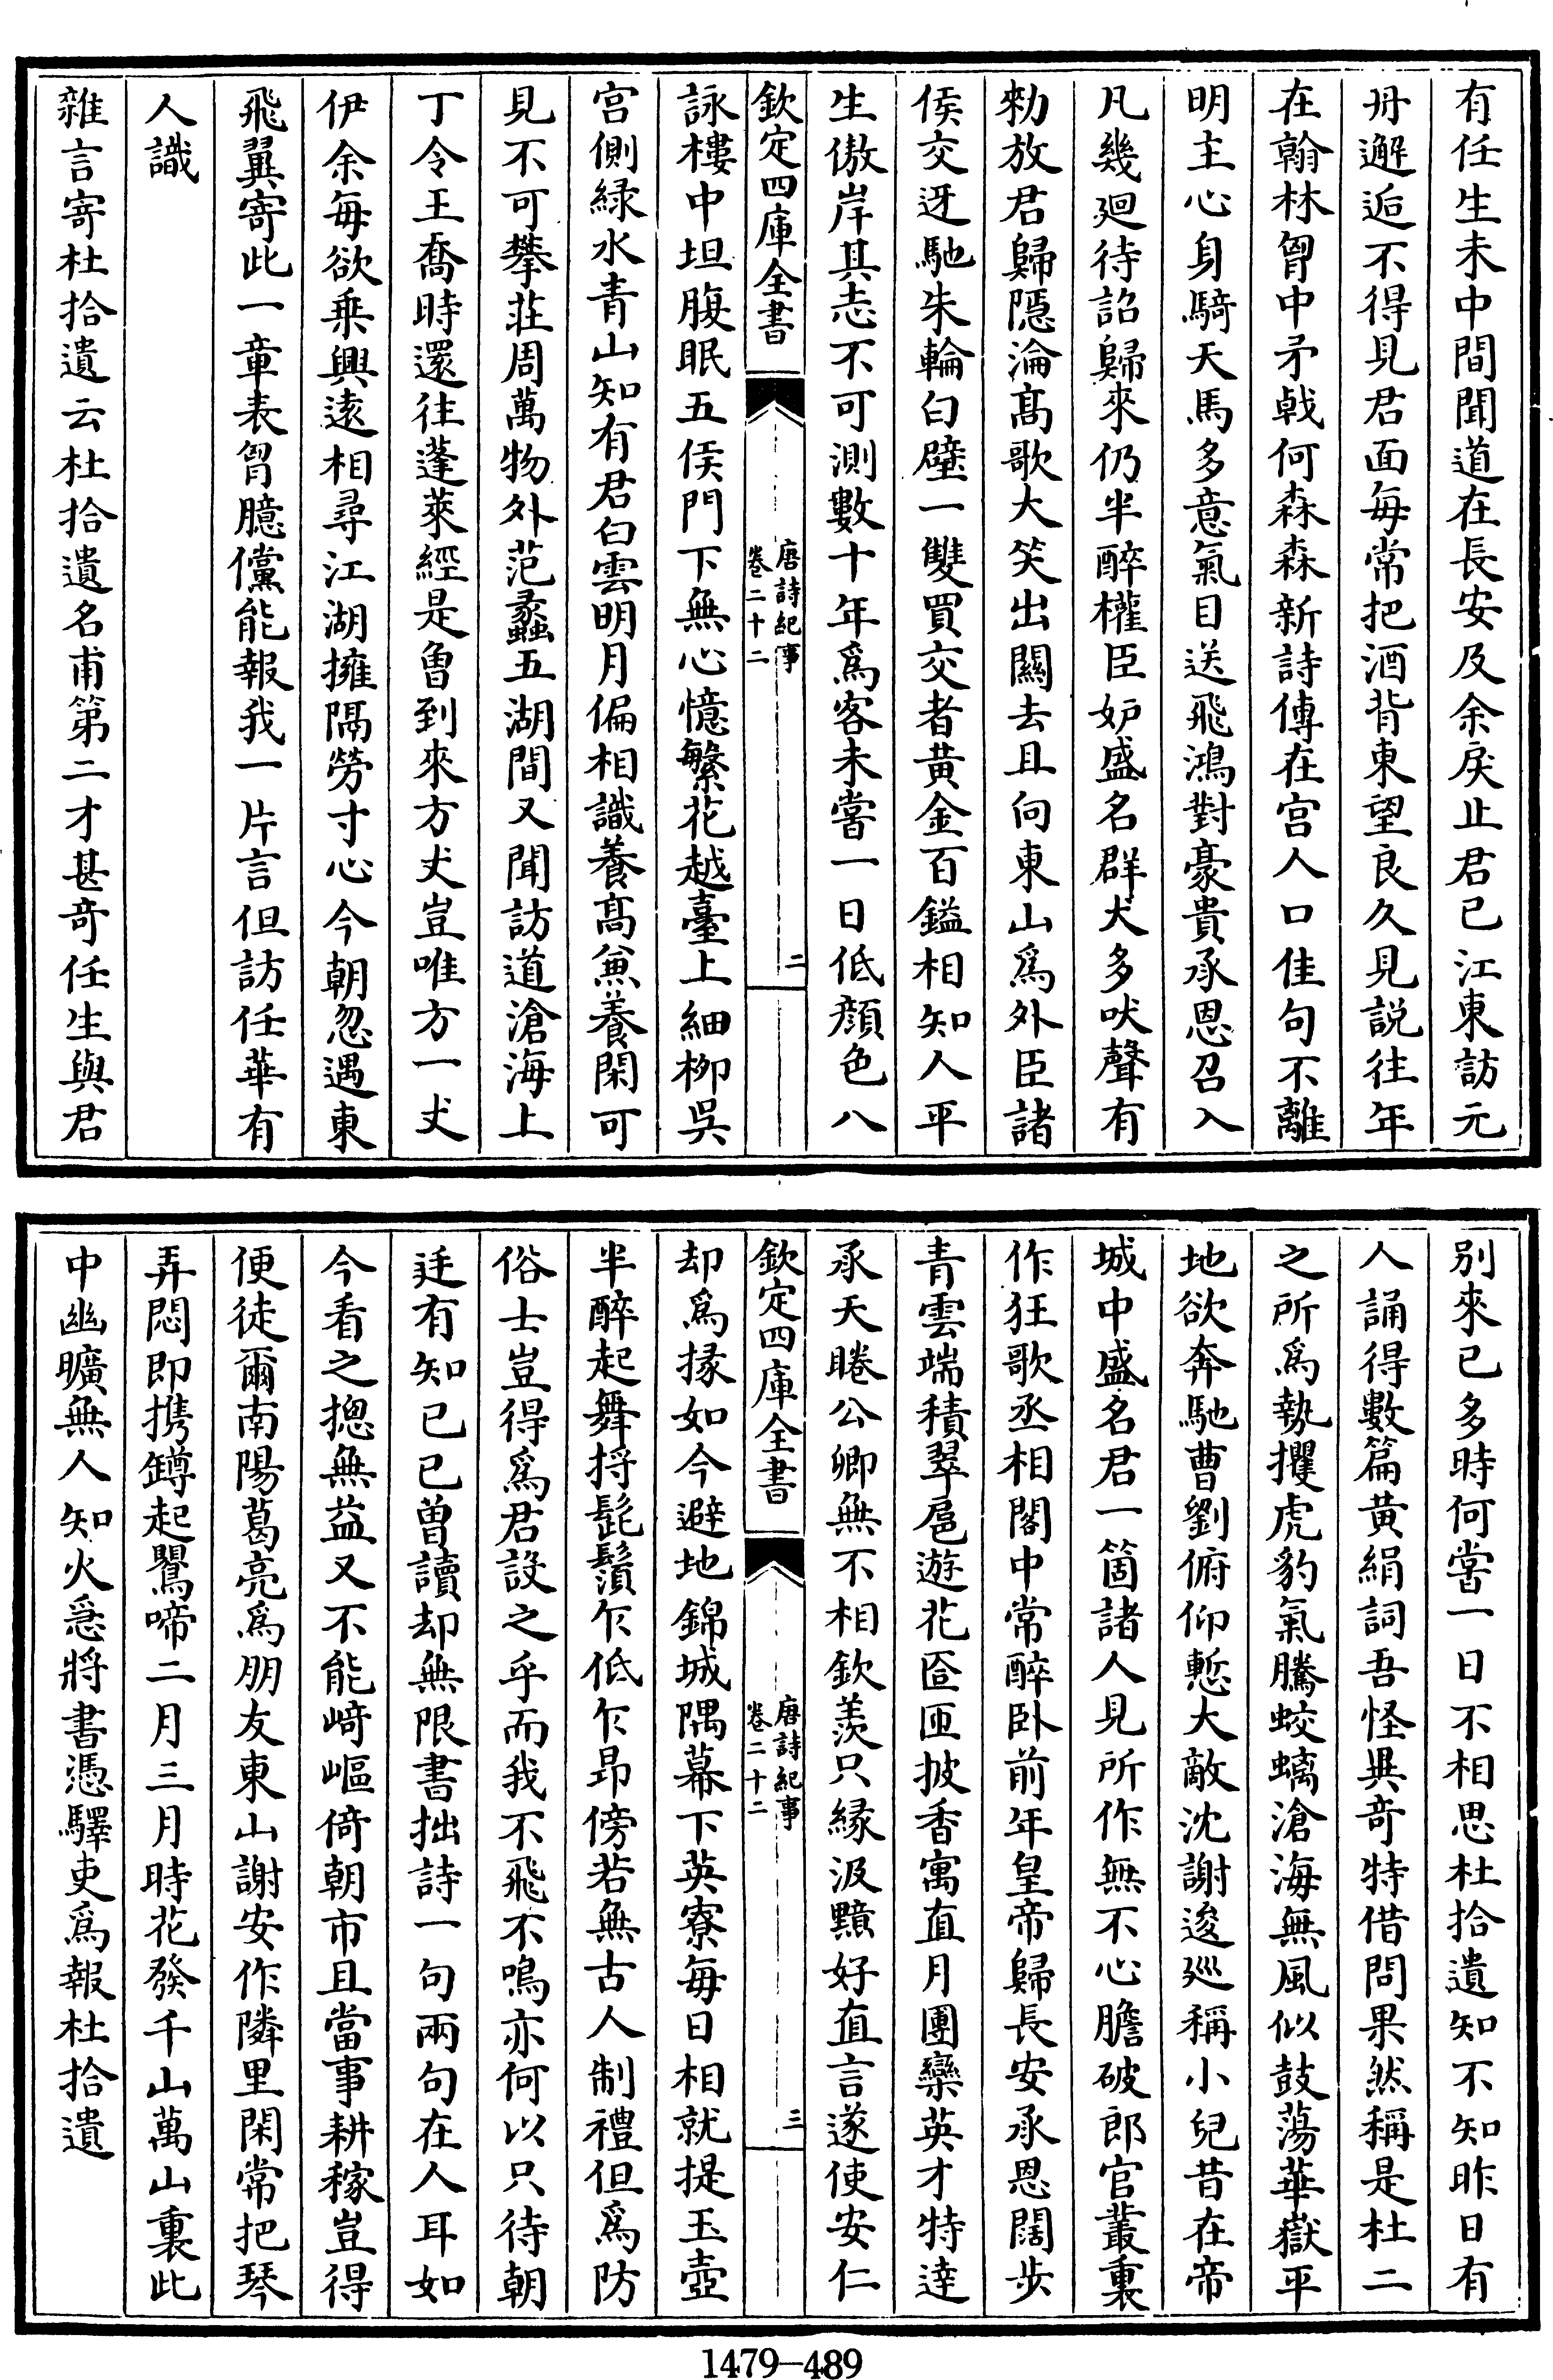 有任生未中間聞道在長安及余戾止君已江東訪元
丹邂逅不得見君面每常把酒背東望良久見説往年
在翰林胷中矛戟何森森新詩傳在宫人口佳句不離
明主心身騎天馬多意氣目送飛鴻對豪貴承恩召入
凡幾迴待詔歸來仍半醉權臣妒盛名群犬多吠聲有
勅放君歸隱淪髙歌大笑出關去且向東山爲外臣諸
侯交迓馳朱輪白璧一雙買交者黄金百鎰相知人平
生傲岸其志不可測數十年爲客未嘗一日低顔色八
欽定四庫全書
唐詩紀事
卷二十二
二
詠樓中坦腹眠五侯門下無心憶繁花越臺上細柳吳
宫側緑水青山知有君白雲明月偏相識養髙兼養閑可
見不可攀莊周萬物外范蠡五湖間又聞訪道滄海上
丁令王喬時還往蓬萊經是曾到來方丈豈唯方一丈
伊余每欲乘興遠相尋江湖擁隔勞寸心今朝忽遇東
飛翼寄此一章表胷臆儻能報我一片言但訪任華有
人識
雜言寄杜拾遺云杜拾遺名甫第二才甚奇任生與君
别來已多時何嘗一日不相思杜拾遺知不知昨日有
人誦得數篇黄絹詞吾怪異奇特借問果然稱是杜二
之所爲執攫虎豹氣騰蛟螭滄海無風似鼓蕩華嶽平
地欲奔馳曹劉俯仰慙大敵沈謝逡巡稱小兒昔在帝
城中盛名君一箇諸人見所作無不心膽破郎官叢裏
作狂歌丞相閣中常醉卧前年皇帝歸長安承恩闊步
青雲端積翠扈遊花匼匝披香寓直月團欒英才特達
承天睠公卿無不相欽羡只緣汲黯好直言遂使安仁
欽定四庫全書
唐詩紀事
卷二十二
三
却爲掾如今避地錦城隅幕下英寮每日相就提玉壺
半醉起舞捋髭鬚乍低乍昻傍若無古人制禮但爲防
俗士豈得爲君設之乎而我不飛不鳴亦何以只待朝
廷有知已已曾讀却無限書拙詩一句兩句在人耳如
今看之揔無益又不能﨑嶇倚朝市且當事耕稼豈得
便徒爾南陽葛亮爲朋友東山謝安作隣里閑常把琴
弄悶即携罇起鸎啼二月三月時花發千山萬山裏此
中幽曠無人知火急將書憑驛吏爲報杜拾遺
1479—489